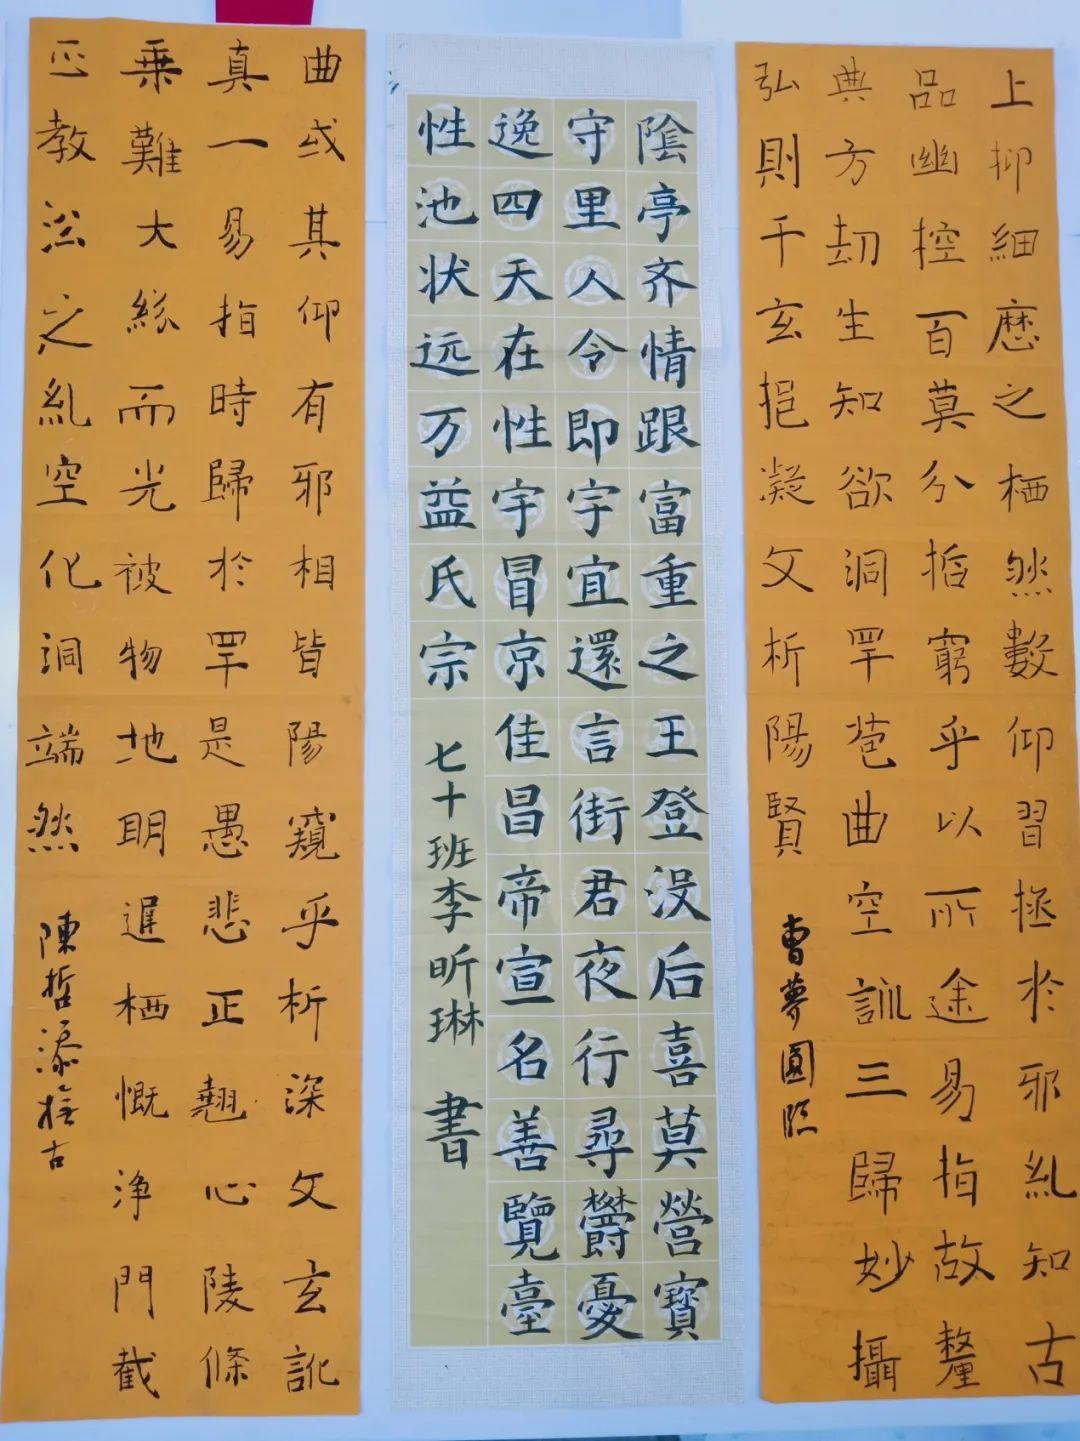 上抑細歷之栖然數仰習拯於邪糺知古
品幽控百莫分哲窮乎以所途易指故釐
典方劫生知欲洞罕苞曲空訓三歸妙攝
弘則千玄挹凝文析陽賢
曹夢圓臨
陰亭齐情跟富重之王登没后喜莫營寶
守里人令即宇宜還言街君夜行尋欝憂
逸四天在性宇冒京佳昌帝宣名善覽臺
性池状远万益氏宗
七十班李昕琳 書
曲或其仰有邪相皆陽窺乎析深文玄訛
真一易指時歸於罕是愚悲正翹心陵條
乗難大総而光被物地明遲栖慨浄門截
正教訟之糺空化洞端然
陳哲添古